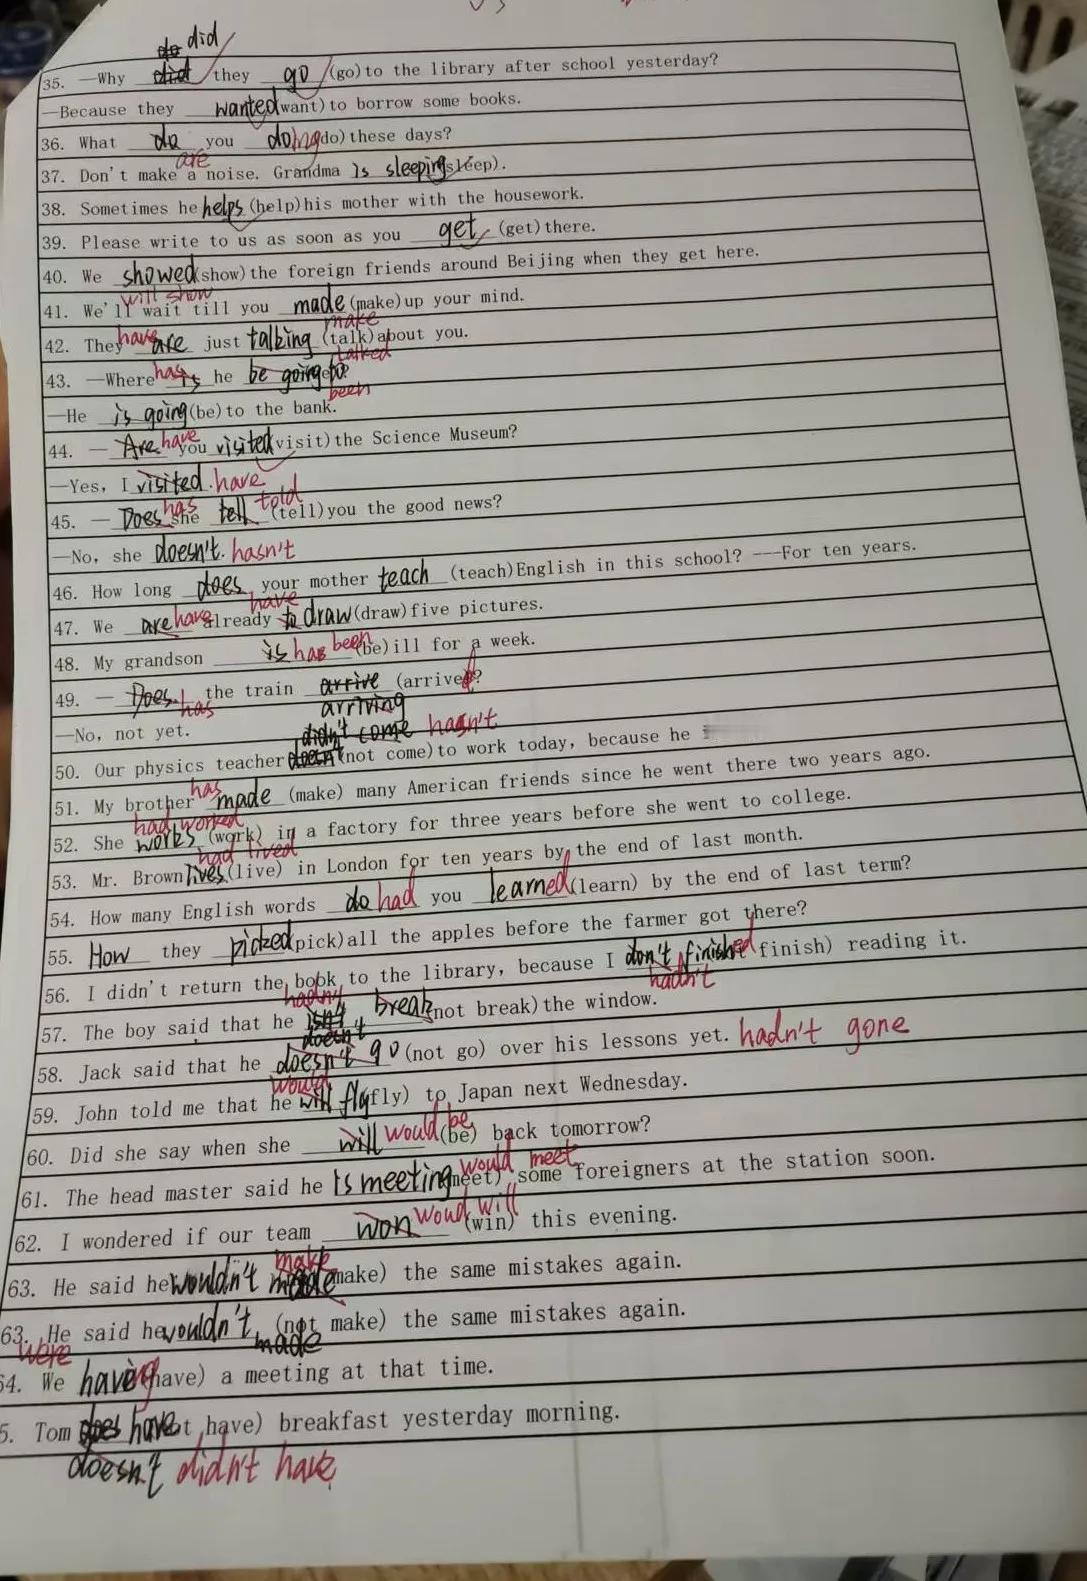 do did
35. —Why did they go (go) to the library after school yesterday?
—Because they wanted (want) to borrow some books.
36. What do you doing (do) these days?
are
37. Don't make a noise. Grandma is sleeping (sleep).
38. Sometimes he helps (help) his mother with the housework.
39. Please write to us as soon as you get (get) there.
40. We showed (show) the foreign friends around Beijing when they get here.
will show
41. We'll wait till you made (make) up your mind.
make
42. They have are just talking (talk) about you.
talked
43. —Where has is he be going to
been
—He is going (be) to the bank.
44. — Are have you visited (visit) the Science Museum?
—Yes, I visited. have
45. — Does has she tell told (tell) you the good news?
—No, she doesn't. hasn't
46. How long does your mother teach (teach) English in this school? ---For ten years.
have
47. We are have already to draw (draw) five pictures.
48. My grandson is has been (be) ill for a week.
49. — Does has the train arrive (arrive d)?
arriving
—No, not yet.
didn't come hasn't
50. Our physics teacher doesn't (not come) to work today, because he
has
51. My brother made (make) many American friends since he went there two years ago.
had worked
52. She works (work) in a factory for three years before she went to college.
had lived
53. Mr. Brown lives (live) in London for ten years by the end of last month.
54. How many English words do had you learned (learn) by the end of last term?
55. How they picked (pick) all the apples before the farmer got there?
56. I didn't return the book to the library, because I don't finished (finish) reading it.
hadn't hadn't
57. The boy said that he isn't break (not break) the window.
doesn't
58. Jack said that he doesn't go (not go) over his lessons yet. hadn't gone
would
59. John told me that he will fly (fly) to Japan next Wednesday.
60. Did she say when she will would be (be) back tomorrow?
61. The head master said he is meeting would meet (meet) some foreigners at the station soon.
62. I wondered if our team won woud will (win) this evening.
make
63. He said he wouldn't made (make) the same mistakes again.
63. He said he wouldn't (not make) the same mistakes again.
made
were
64. We having (have) a meeting at that time.
5. Tom does have (not have) breakfast yesterday morning.
doesn't didn't have